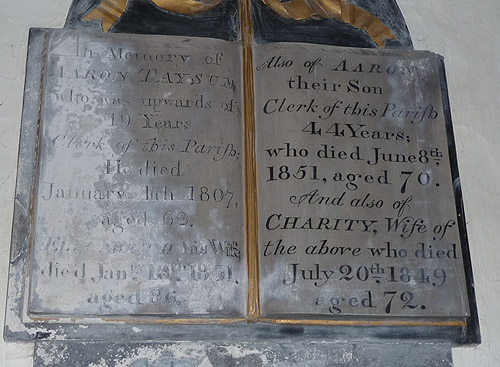 In Memory of
AARON TAYSUM
who was upwards of
19 Years
Clerk of this Parish,
He died
January 1807,
aged 62.
his Wife
died Jan.y 1831.
aged 86.
Also of AARON
their Son
Clerk of this Parish
44 Years;
who died June 8th
1851, aged 70.
And also of
CHARITY, Wife of
the above who died
July 20th 1849
aged 72.